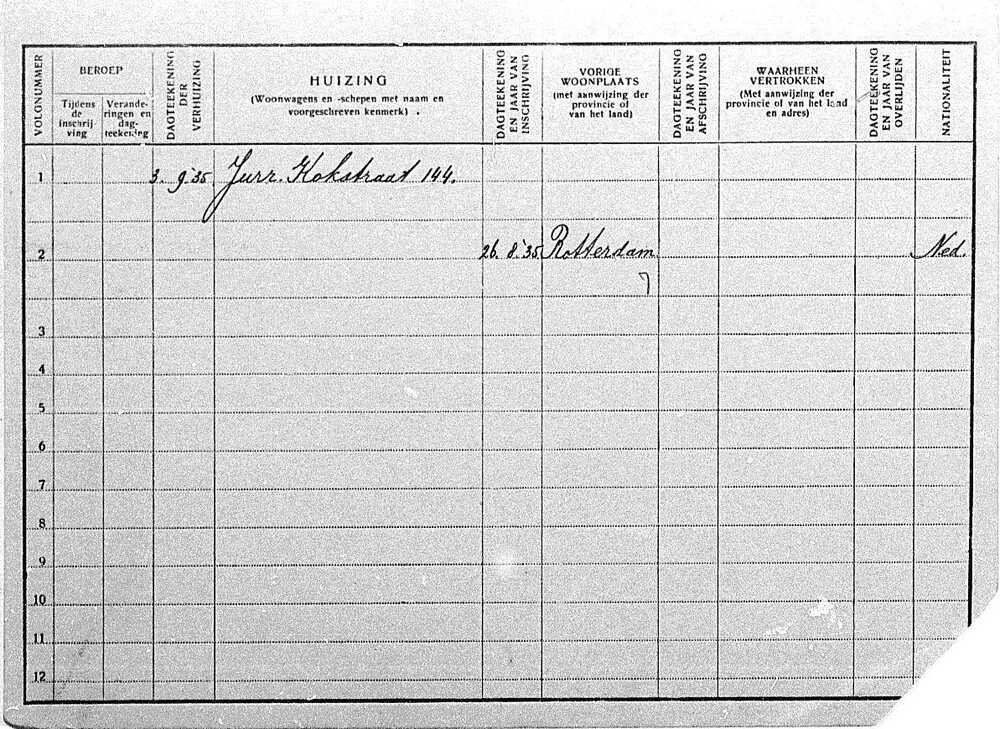 VOLGNUMMER
BEROEP
Tijdens
de
inschrij-
ving
Verande-
ringen en
dag-
teekening
DAGTEEKENING
DER
VERHUIZING
HUIZING
(Woonwagens en -schepen met naam en
voorgeschreven kenmerk)
DAGTEEKENING
EN JAAR VAN
INSCHRIJVING
VORIGE
WOONPLAATS
(met aanwijzing der
provincie of
van het land)
DAGTEEKENING
EN JAAR VAN
AFSCHRIJVING
WAARHEEN
VERTROKKEN
(Met aanwijzing der
provincie of van het land
en adres)
DAGTEEKENING
EN JAAR VAN
OVERLIJDEN
NATIONALITEIT
1 3. 9.'35 Jurr. Kokstraat 144.
2 26. 8.'35 Rotterdam. Ned.
3
4
5
6
7
8
9
10
11
12